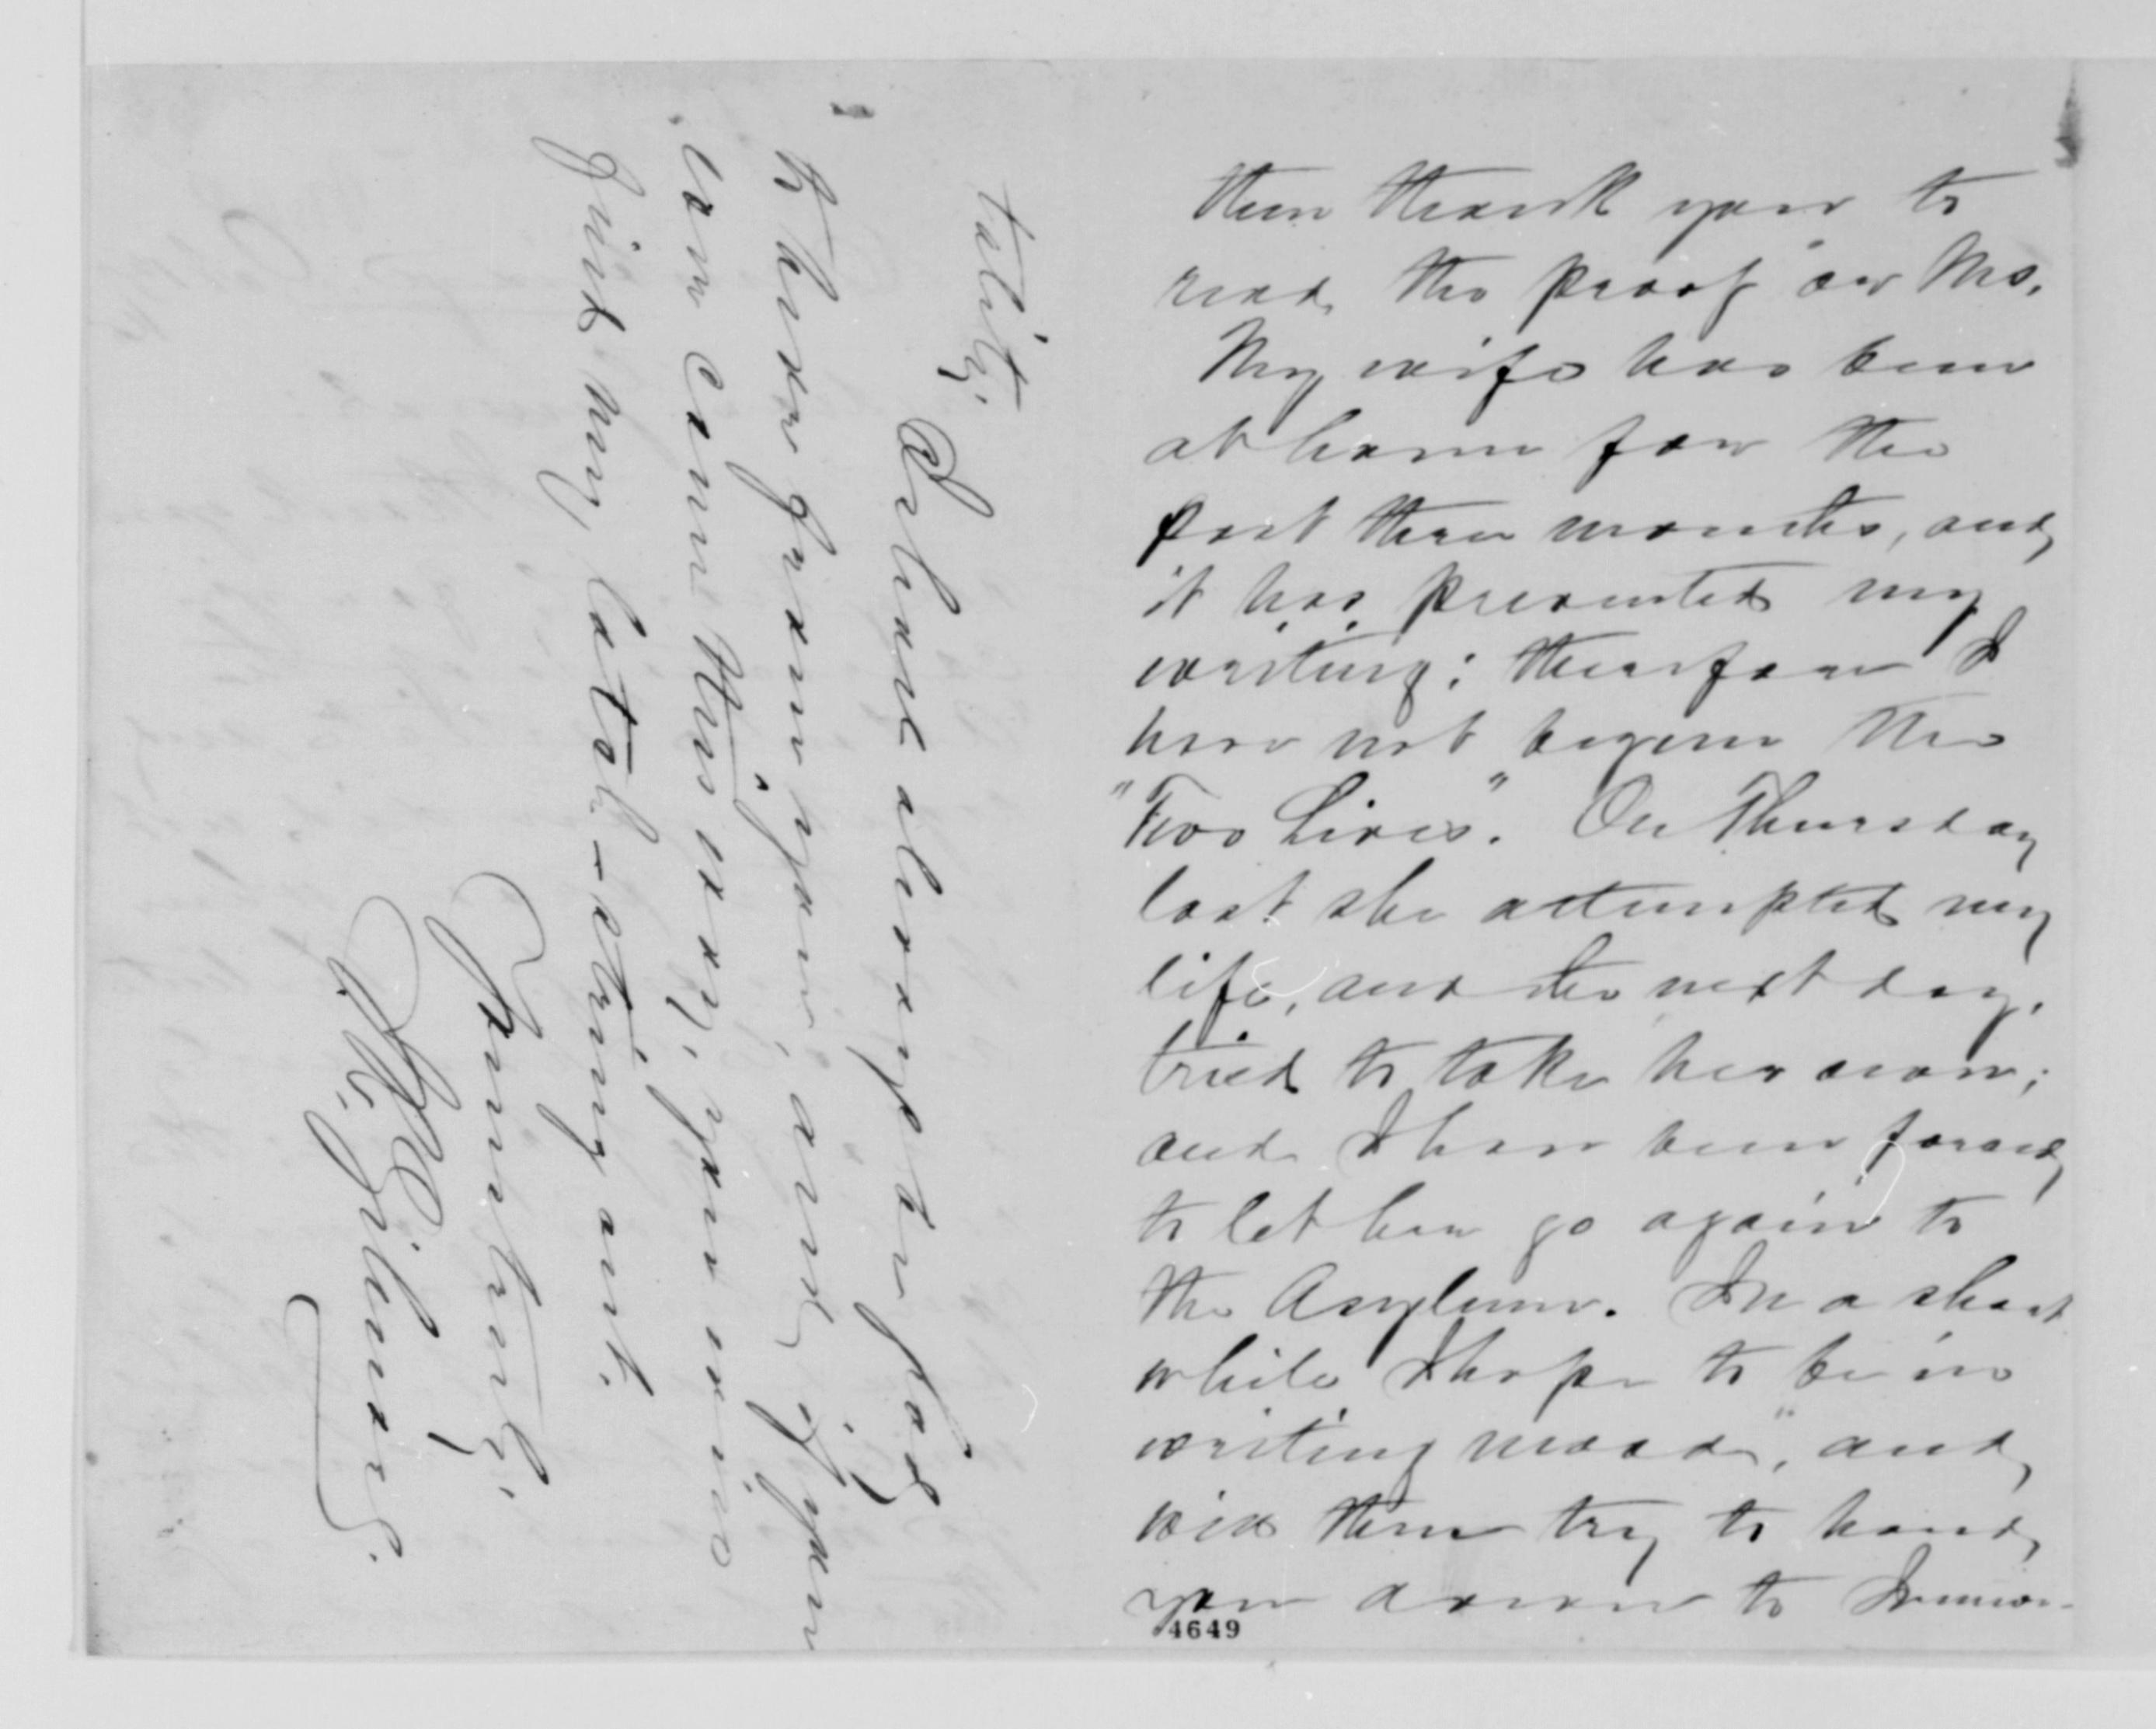 then thank you to
read the proof or Ms.
My wife has been
at home for the
past three months, and
it has prevented my
writing; therefore I
have not begun the
"Two Lives". On Thursday
last she attempted my
life, and the next day,
tried to take her own;
and I have been forced
to let her go again to
the Asylum. In a short
while I hope to be in
writing mood", and
will then try to hand
you down to Immor-
4649
tality.
I shall always be glad
to hear from you, and if you
can come this way, you will
find my latch-string out.
Yours truly
J. H. Gilmer.